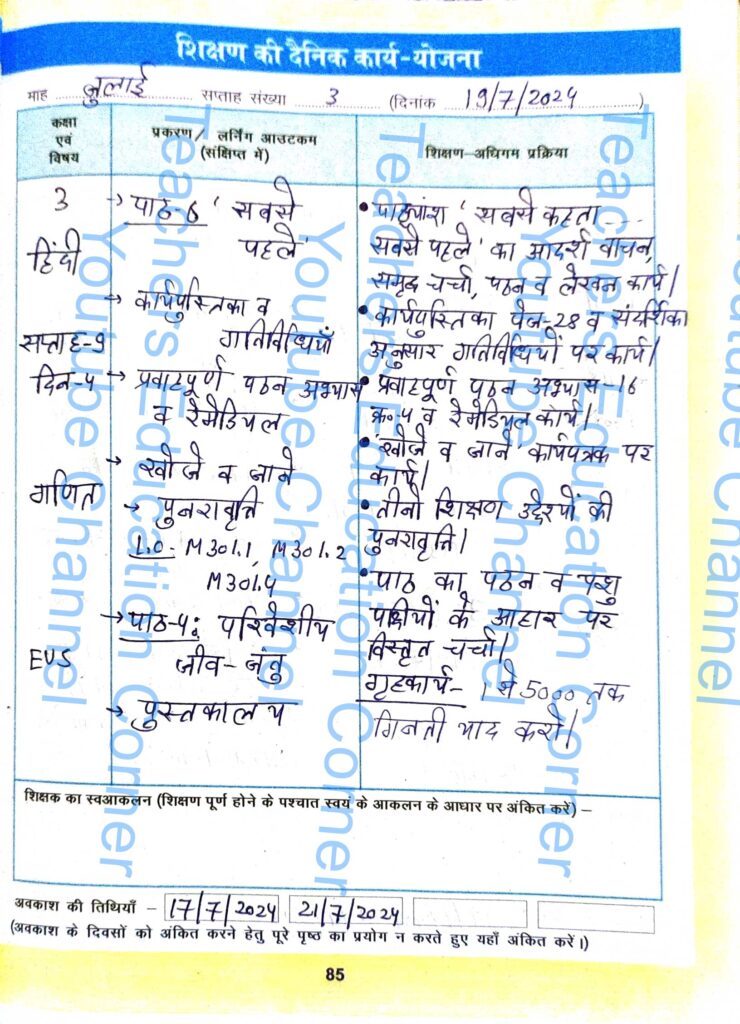 शिक्षण की दैनिक कार्य-योजना
माह जुलाई सप्ताह संख्या 3 (दिनांक 19/7/2024)
कक्षा एवं विषय
प्रकरण/ लर्निंग आउटकम (संक्षिप्त में)
शिक्षण-अधिगम प्रक्रिया
3
हिंदी
सप्ताह-9
दिन-4
→ पाठ-6 'सबसे
पहले'
→ कार्यपुस्तिका व
गतिविधियाँ
→ प्रवाहपूर्ण पठन अभ्यास
व रेमेडियल
→ खोजें व जाने
• पाठ्यांश 'सबसे कहता ....
सबसे पहले' का आदर्श वाचन,
समूह चर्चा, पठन व लेखन कार्य।
• कार्यपुस्तिका पेज-28 व संदर्शिका
अनुसार गतिविधियों पर कार्य।
• प्रवाहपूर्ण पठन अभ्यास-16
क्र०-4 व रेमेडियल कार्य।
• 'खोजें व जाने' कार्यपत्रक पर
कार्य।
गणित
→ पुनरावृत्ति
L.O- M301.1, M301.2
M301.4
• तीनो शिक्षण उद्देश्यों की
पुनरावृत्ति।
EVS
→ पाठ-4: परिवेशीय
जीव-जंतु
→ पुस्तकालय
• पाठ का पठन व पशु
पक्षियों के आहार पर
विस्तृत चर्चा।
गृहकार्य- 1 से 5000 तक
गिनती याद करो।
शिक्षक का स्वआकलन (शिक्षण पूर्ण होने के पश्चात स्वयं के आकलन के आधार पर अंकित करें) –
अवकाश की तिथियाँ – 17/7/2024 21/7/2024
(अवकाश के दिवसों को अंकित करने हेतु पूरे पृष्ठ का प्रयोग न करते हुए यहाँ अंकित करें।)
85
Teachers Education Corner
Youtube Channel
Teachers Education Corner
Youtube Channel
Teachers Education Corner
Youtube Channel